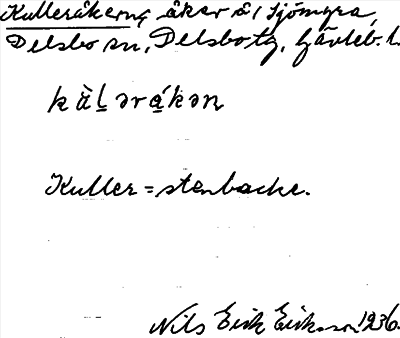 Kulleråkern, åker å/ Sjömyra,
Delsbo sn, Delsbo tg, Gävleb. l.
kàḷərákən
Kuller = stenbacke.
Nils Erik Eriksson 1936.